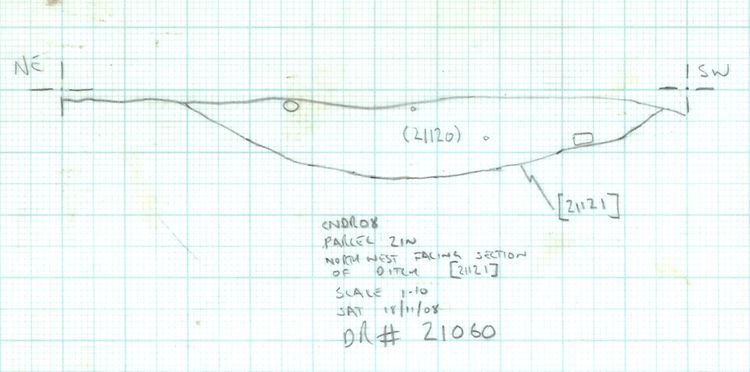 NE
SW
(21120)
[21121]
CNDR08
PARCEL 21N
NORTH WEST FACING SECTION
OF DITCH [21121]
SCALE 1-10
SAT 18/11/08
DR# 21060